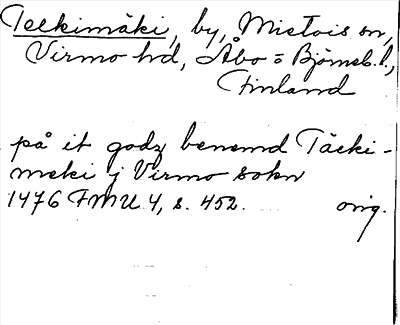 Telkimäki, by, Mietois sn,
Virmo hd, Åbo = Björneb. l.,
Finland
på it godz benemd Täcki-
meki j Virmo sokn
1476 FMU 4, s. 452. orig.